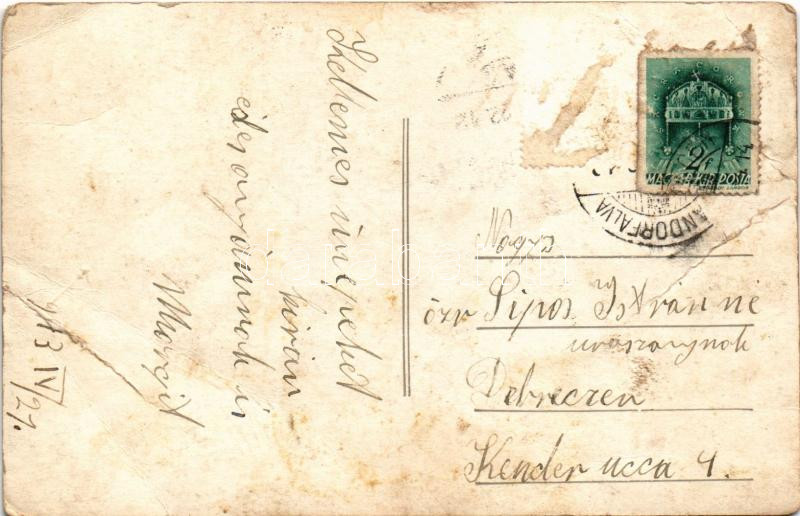 Kellemes ünnepeket
kiván
édes anyámnak is
Margit
943 IV/21.
MAGYAR KIR. POSTA
ANDORFALVA
Nagys
özv Sipos Istvánné
urasszonynak
Debreczen
Kender ucca 4.